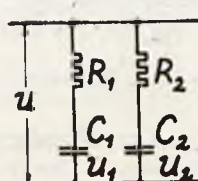 R₁ R₂
u
C₁ C₂
u₁ u₂